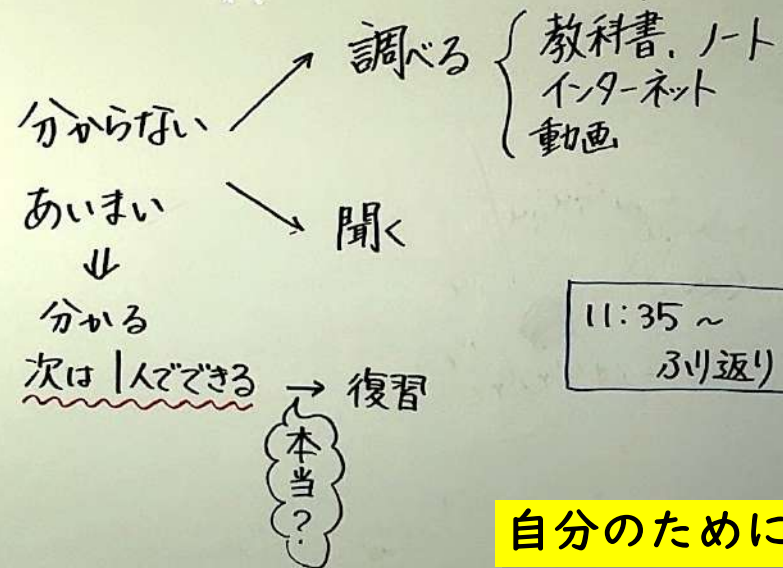 分からない
あいまい
⇓
分かる
次は1人でできる → 復習
本当?
調べる { 教科書、ノート
インターネット
動画
聞く
11:35 ~
ふり返り
自分のために